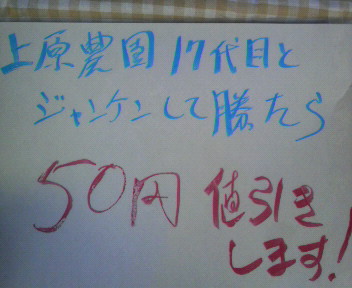 上原農園17代目と
ジャンケンして勝たら
50円値引き
します!